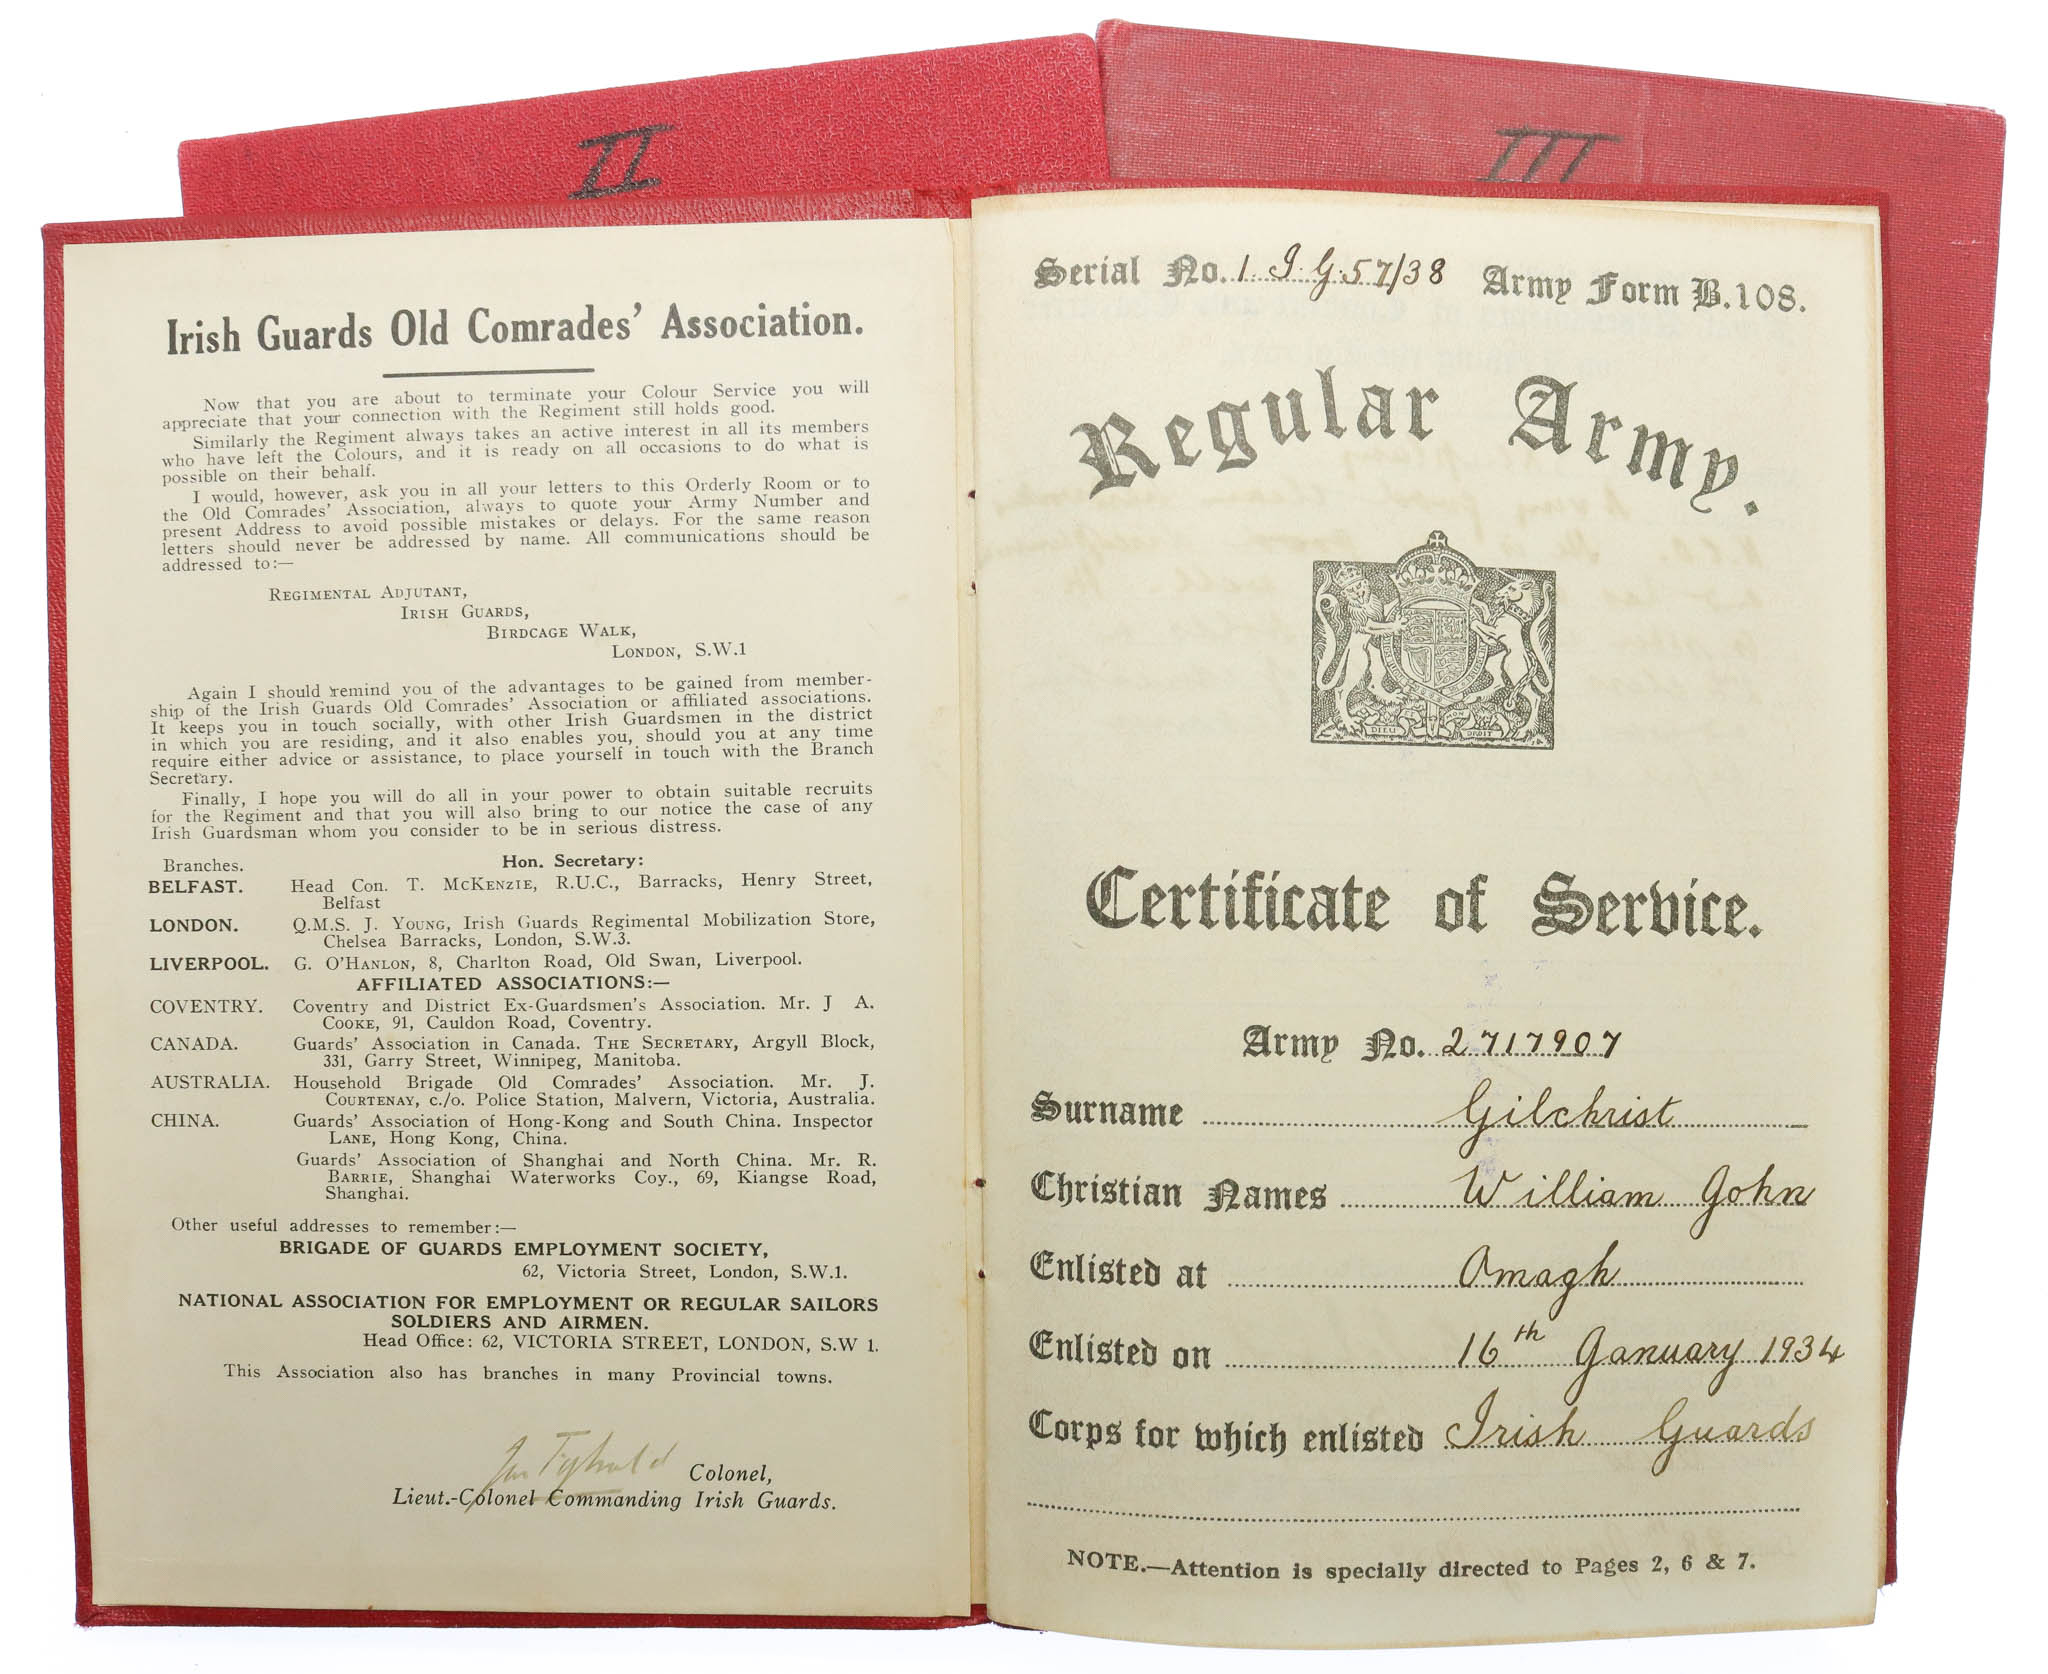 II
III
Irish Guards Old Comrades' Association.
Now that you are about to terminate your Colour Service you will
appreciate that your connection with the Regiment still holds good.
Similarly the Regiment always takes an active interest in all its members
who have left the Colours, and it is ready on all occasions to do what is
possible on their behalf.
I would, however, ask you in all your letters to this Orderly Room or to
the Old Comrades' Association, always to quote your Army Number and
present Address to avoid possible mistakes or delays. For the same reason
letters should never be addressed by name. All communications should be
addressed to:—
REGIMENTAL ADJUTANT,
IRISH GUARDS,
BIRDCAGE WALK,
LONDON, S.W.1
Again I should remind you of the advantages to be gained from member-
ship of the Irish Guards Old Comrades' Association or affiliated associations.
It keeps you in touch socially, with other Irish Guardsmen in the district
in which you are residing, and it also enables you, should you at any time
require either advice or assistance, to place yourself in touch with the Branch
Secretary.
Finally, I hope you will do all in your power to obtain suitable recruits
for the Regiment and that you will also bring to our notice the case of any
Irish Guardsman whom you consider to be in serious distress.
Branches. Hon. Secretary:
BELFAST. Head Con. T. McKENZIE, R.U.C., Barracks, Henry Street,
Belfast
LONDON. Q.M.S. J. YOUNG, Irish Guards Regimental Mobilization Store,
Chelsea Barracks, London, S.W.3.
LIVERPOOL. G. O'HANLON, 8, Charlton Road, Old Swan, Liverpool.
AFFILIATED ASSOCIATIONS:—
COVENTRY. Coventry and District Ex-Guardsmen's Association. Mr. J A.
COOKE, 91, Cauldon Road, Coventry.
CANADA. Guards' Association in Canada. THE SECRETARY, Argyll Block,
331, Garry Street, Winnipeg, Manitoba.
AUSTRALIA. Household Brigade Old Comrades' Association. Mr. J.
COURTENAY, c./o. Police Station, Malvern, Victoria, Australia.
CHINA. Guards' Association of Hong-Kong and South China. Inspector
LANE, Hong Kong, China.
Guards' Association of Shanghai and North China. Mr. R.
BARRIE, Shanghai Waterworks Coy., 69, Kiangse Road,
Shanghai.
Other useful addresses to remember:—
BRIGADE OF GUARDS EMPLOYMENT SOCIETY,
62, Victoria Street, London, S.W.1.
NATIONAL ASSOCIATION FOR EMPLOYMENT OR REGULAR SAILORS
SOLDIERS AND AIRMEN.
Head Office: 62, VICTORIA STREET, LONDON, S.W 1.
This Association also has branches in many Provincial towns.
Colonel,
Lieut.-Colonel Commanding Irish Guards.
Serial No. 1. I. G. 57/38 Army Form B.108.
Regular Army.
DIEU ET MON DROIT
Certificate of Service.
Army No. 2717907
Surname Gilchrist
Christian Names William John
Enlisted at Omagh
Enlisted on 16th January 1934
Corps for which enlisted Irish Guards
NOTE.—Attention is specially directed to Pages 2, 6 & 7.